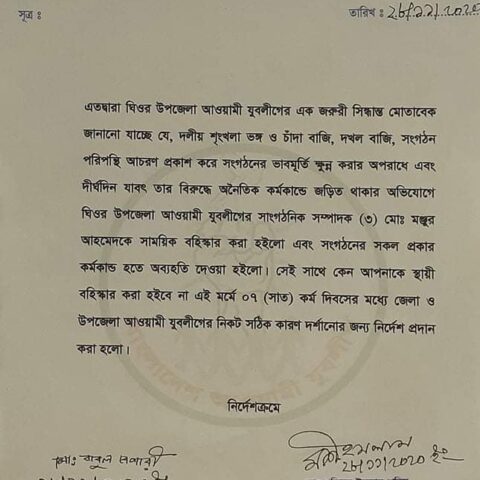 সূত্র ঃ
তারিখ ঃ ২৮/১১/২০২০
এতদ্বারা ঘিওর উপজেলা আওয়ামী যুবলীগের এক জরুরী সিদ্ধান্ত মোতাবেক
জানানো যাচ্ছে যে, দলীয় শৃংখলা ভঙ্গ ও চাঁদা বাজি, দখল বাজি, সংগঠন
পরিপন্থি আচরণ প্রকাশ করে সংগঠনের ভাবমূর্তি ক্ষুন্ন করার অপরাধে এবং
দীর্ঘদিন যাবৎ তার বিরুদ্ধে অনৈতিক কর্মকান্ডে জড়িত থাকার অভিযোগে
ঘিওর উপজেলা আওয়ামী যুবলীগের সাংগঠনিক সম্পাদক (৩) মোঃ মঞ্জুর
আহমেদকে সাময়িক বহিস্কার করা হইলো এবং সংগঠনের সকল প্রকার
কর্মকান্ড হতে অব্যহতি দেওয়া হইলো। সেই সাথে কেন আপনাকে স্থায়ী
বহিস্কার করা হইবে না এই মর্মে ০৭ (সাত) কর্ম দিবসের মধ্যে জেলা ও
উপজেলা আওয়ামী যুবলীগের নিকট সঠিক কারণ দর্শানোর জন্য নির্দেশ প্রদান
করা হলো।
নির্দেশক্রমে
মোঃ বাবুল
২৮/১১/২০২০ ইং